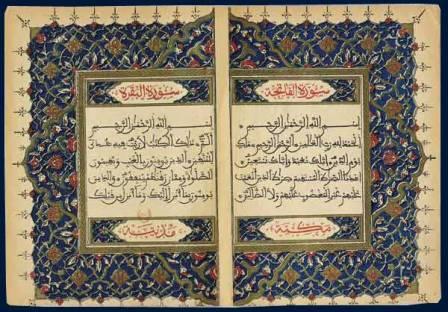 سورة الفاتحة
بسم الله الرحمن الرحيم
الحمد لله رب العالمين الرحمن الرحيم ملك
يوم الدين اياك نعبد واياك نستعين
اهدنا الصراط المستقيم صراط الذين انعمت
عليهم غير المغضوب عليهم ولا الضالين
مكية
سورة البقرة
بسم الله الرحمن الرحيم
الم ذلك الكتاب لا ريب فيه هدى
للمتقين الذين يؤمنون بالغيب ويقيمون
الصلوة ومما رزقناهم ينفقون والذين
يؤمنون بما انزل اليك وما انزل من قبلك
مدنية